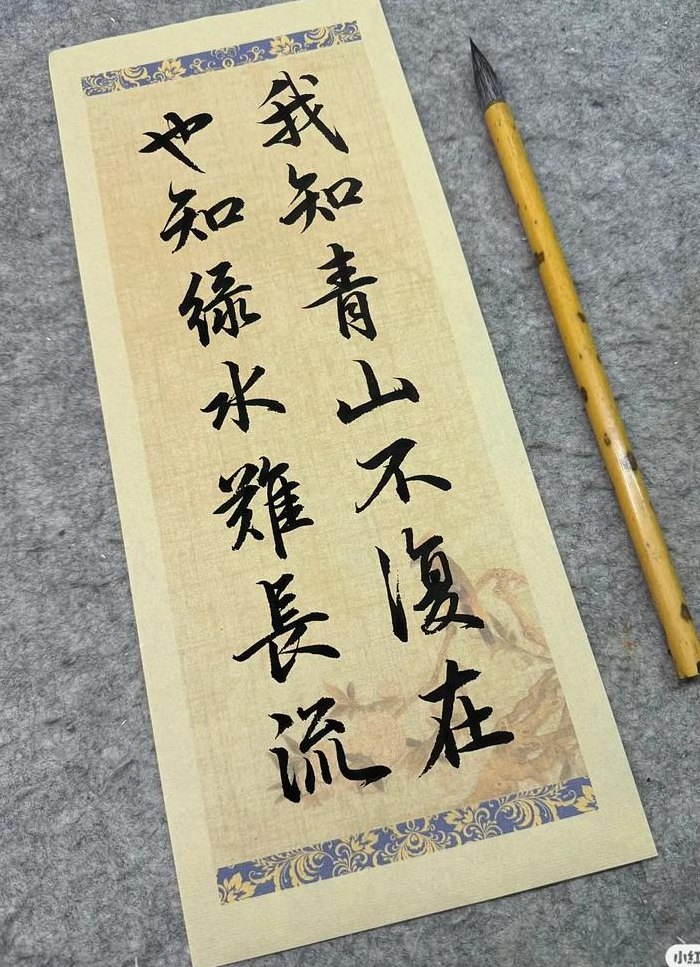 我知青山不復在
也知緑水難長流
小红